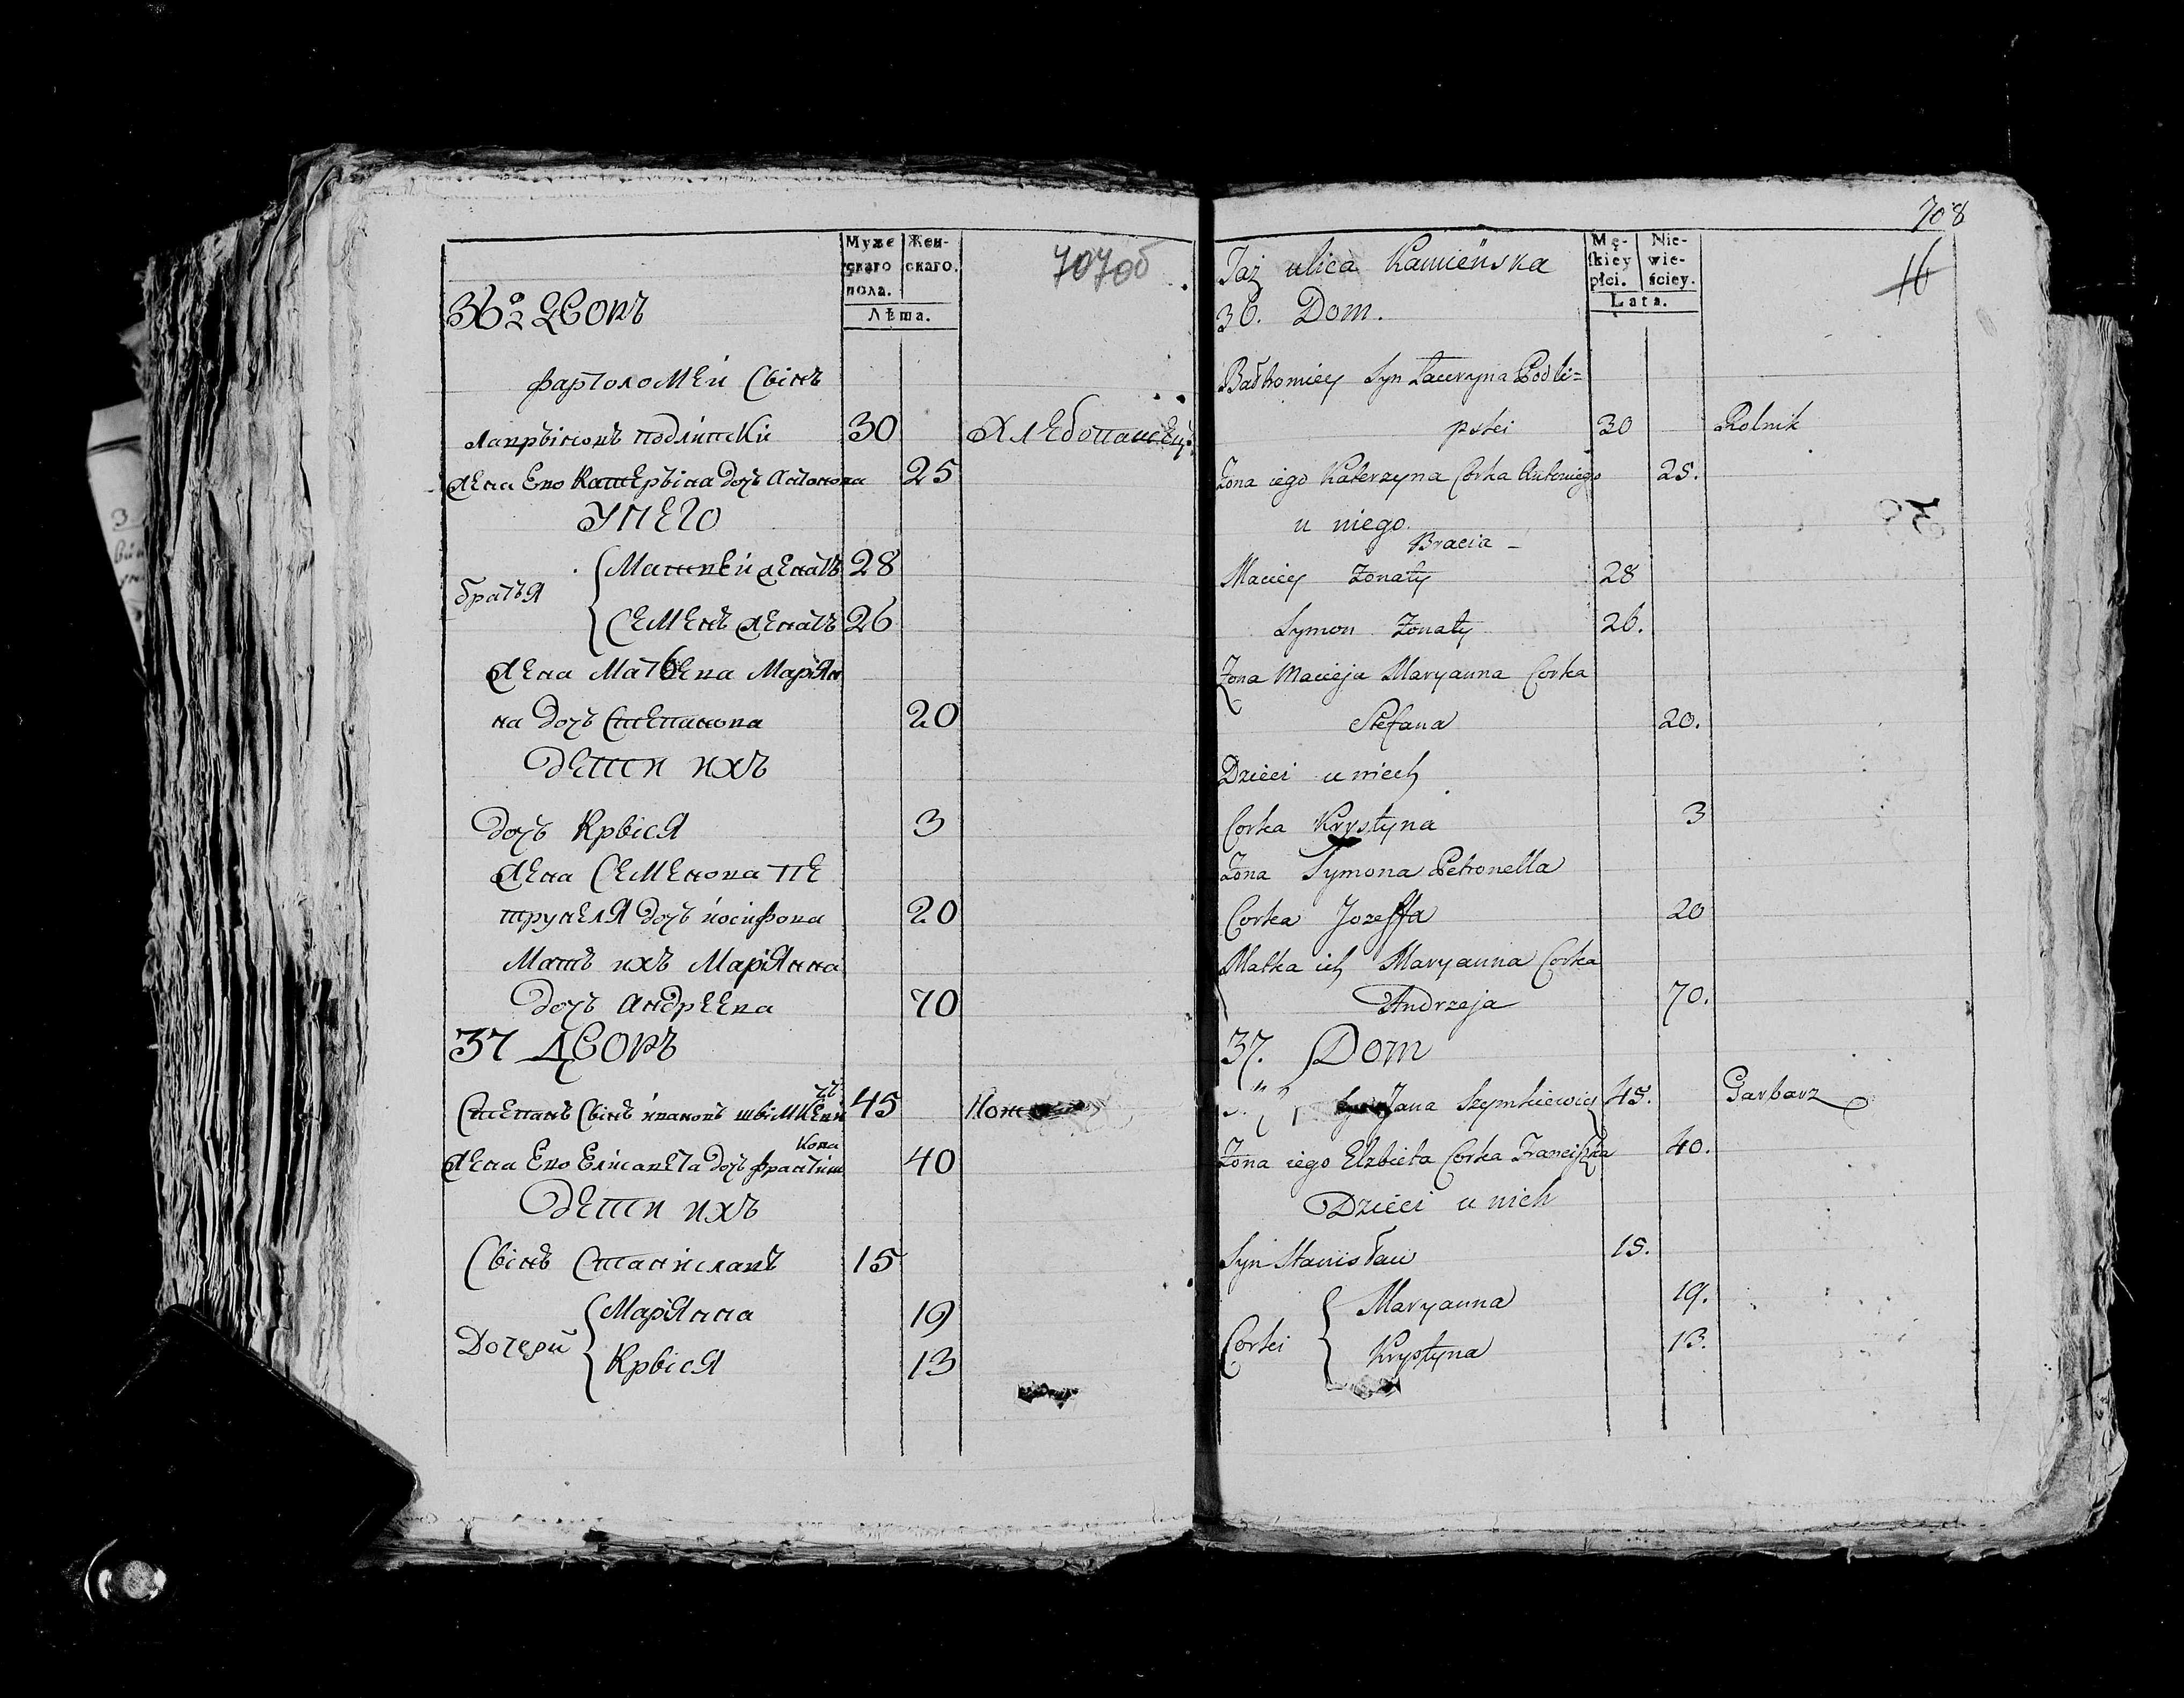 Муже
скаго
пола.
Жен-
скаго.
Лѣта.
707об
36й дворъ
фартоломей Свінъ
лаврвіновъ подліпски 30 Хлебопашецъ
жена Ево Катервіна дочъ Антонова 25
У него
братья
Матвей женатъ 28
Семенъ женатъ 26
жена Матвева Маріян
на дочъ Степанова 20
дети ихъ
дочъ Крвіся 3
жена Семенова Пе
трунеля дочъ іосіфова 20
Матъ ихъ Маріянна
дочъ Андреева 70
37 дворъ
Степанъ Свінъ івановъ швімкеви
чъ 45
жена Ево Елісавета дочъ франтіш
кова 40
дети ихъ
Свінъ Станиславъ 15
Дочери
Маріянна 19
Крвіся 13
708
16
Mę-
skiey
płci.
Nie-
wie-
ściey.
Lata.
Taż ulica Kamieńska
36. Dom.
Bałtromiey Syn Lauryna Podli=
pski 30 Rolnik
Żona iego Katerzyna Corka Antoniego 25.
u niego
Bracia -
Maciey Żonaty 28
Symon Żonaty 26.
Żona Macieja Maryanna Corka
Stefana 20.
Dzieci u niech
Corka Krystyna 3
Żona Symona Petronella
Corka Jozeffa 20
Matka ich Maryanna Corka
Andrzeja 70.
37. Dom
Jana Szymkiewicz 45. Garbarz
Żona iego Elzbieta Corka Franciszka 40.
Dzieci u nich
Syn Stanisław 15.
Corki
Maryanna 19.
Krystyna 13.